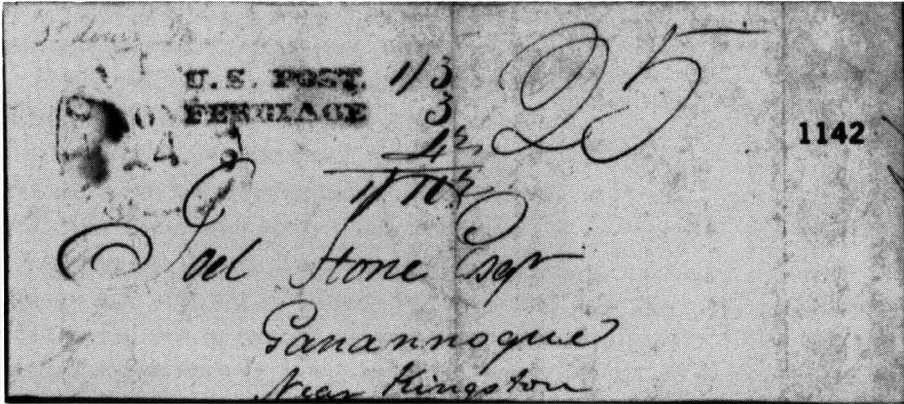 St. Louis
U.S. POST. 1/3 25
FERRIAGE 3
4½
1/10½
1142
Joel Stone Esqr
Ganannoque
Near Kingston